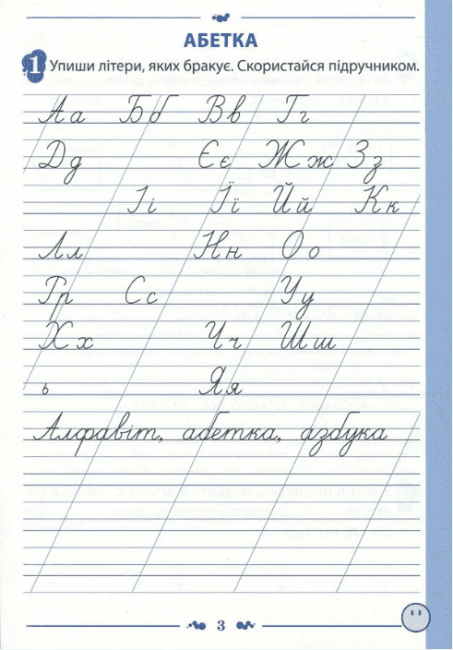 АБЕТКА
1 Упиши літери, яких бракує. Скористайся підручником.
Аа Бб Вв Гг
Дд Єє Жж Зз
Іі Її Йй Кк
Лл Нн Оо
Рр Сс Уу
Хх Чч Шш
ь Яя
Алфавіт, абетка, азбука
3